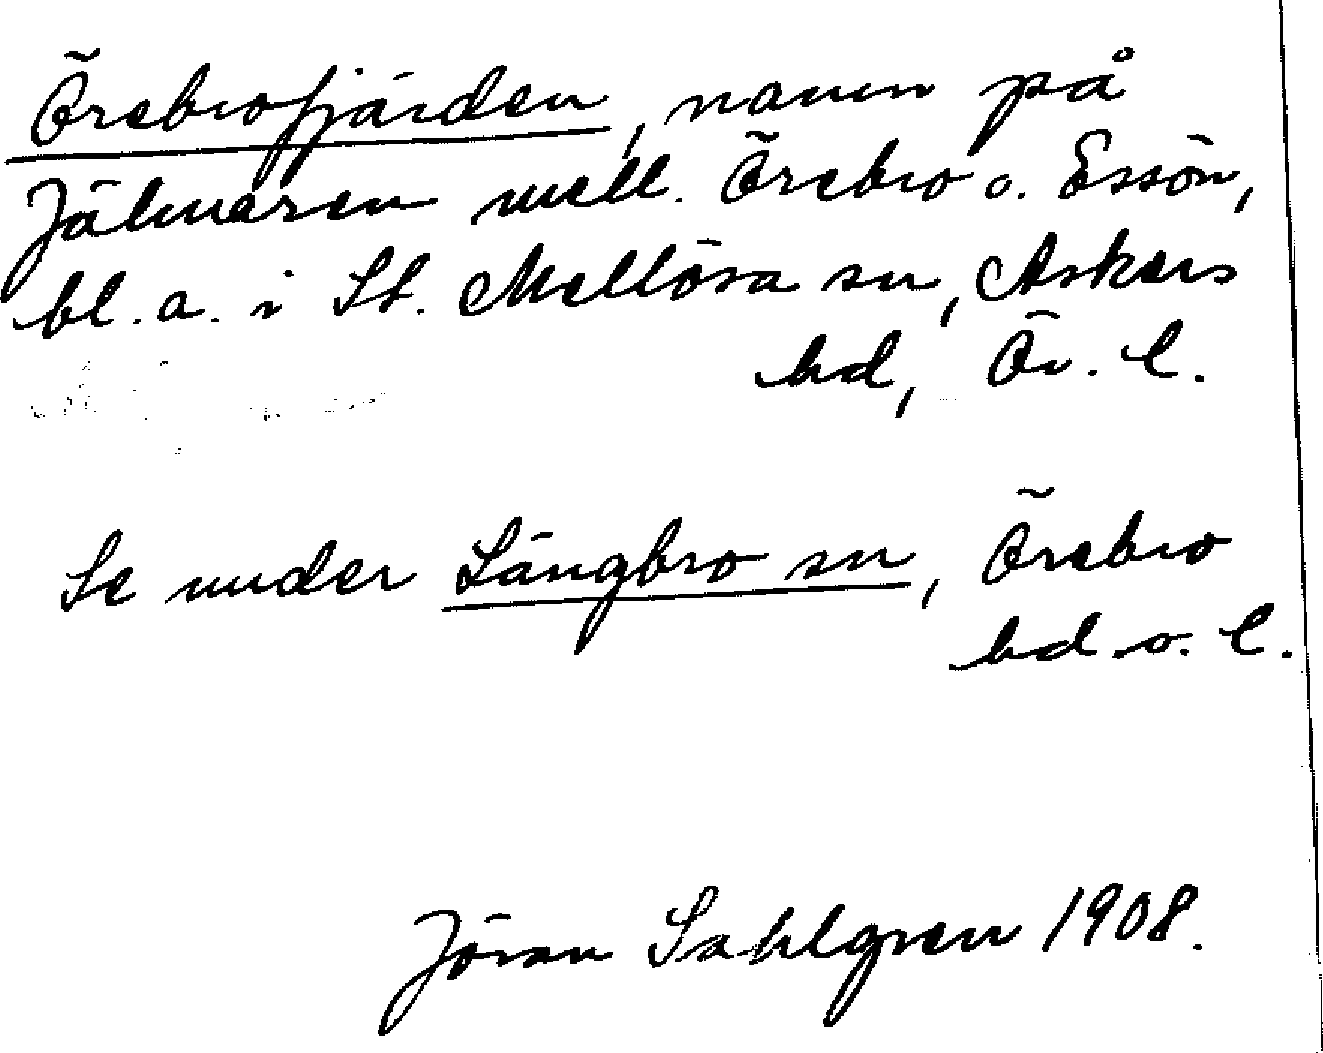 Örebrofjärden, namn på
Jälmaren mell. Örebro o. Essön,
bl. a. i St. Mellösa sn, Askers
hd, Ör. l.
Se under Längbro sn, Örebro
hd o. l.
Jöran Sahlgren 1908.